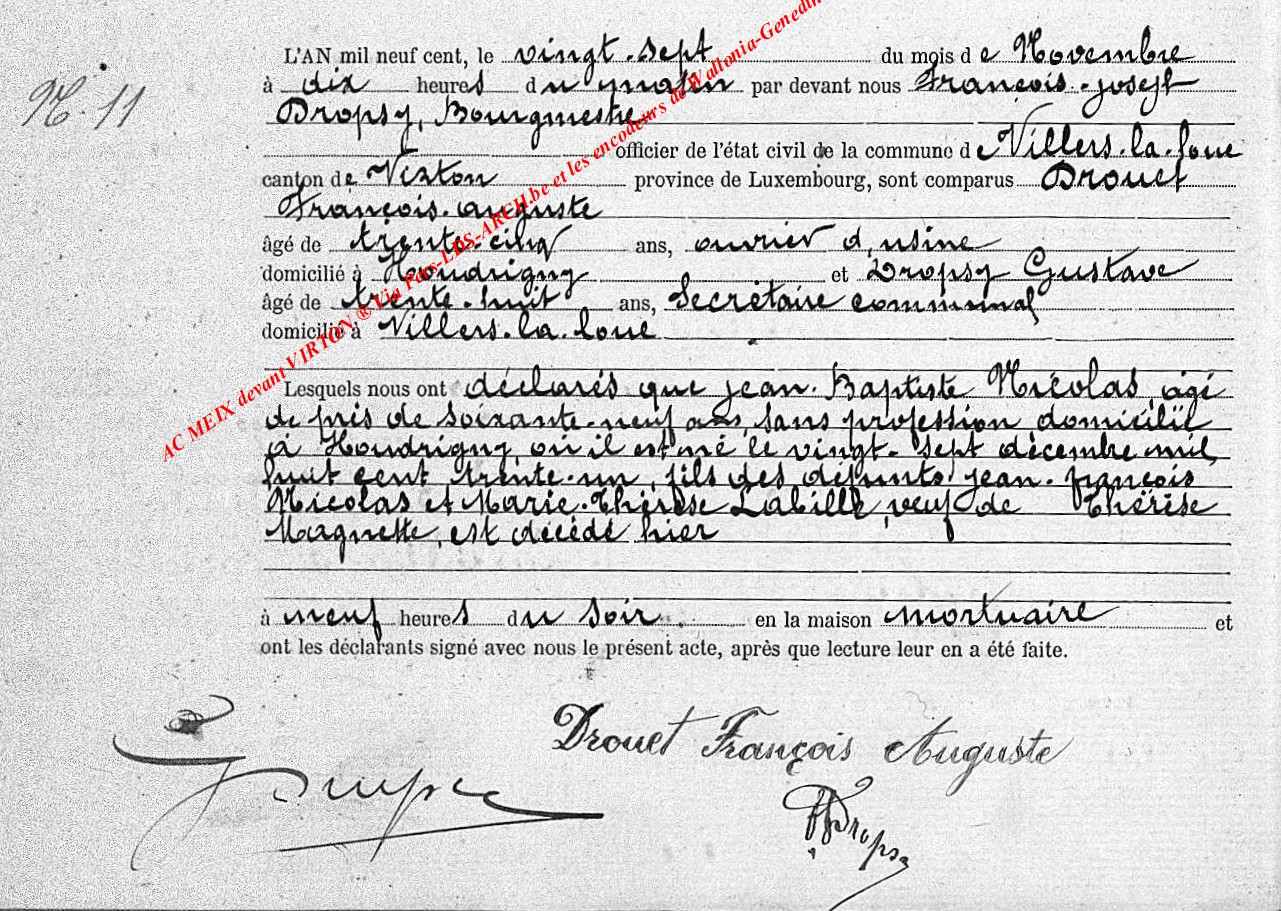 N. 11
L'AN mil neuf cent, le vingt-sept du mois de Novembre
à dix heures du matin par devant nous François-joseph
Dropsy, Bourgmestre
officier de l'état civil de la commune de Villers-la-loue
canton de Virton province de Luxembourg, sont comparus Drouet
François-auguste
âgé de trente-cinq ans, ouvrier d'usine
domicilié à Houdrigny et Dropsy Gustave
âgé de trente-huit ans, Secrétaire communal
domicilié à Villers-la-loue
Lesquels nous ont déclarés que jean-Baptiste Nicolas, âgé
de près de soixante-neuf ans, sans profession domicilié
à Houdrigny, où il est né le vingt-sept décembre mil
huit cent trente-un, fils des défunts jean-françois
Nicolas et Marie-Thérèse Labille, veuf de Thérèse
Magnette, est décédé hier
à neuf heures du soir. en la maison mortuaire et
ont les déclarants signé avec nous le présent acte, après que lecture leur en a été faite.
Drouet François Auguste
Dropsy
AC MEIX devant VIRTON ® Via Fars-LDS-ARCH.be et les encodeurs de Wallonia-Genedin